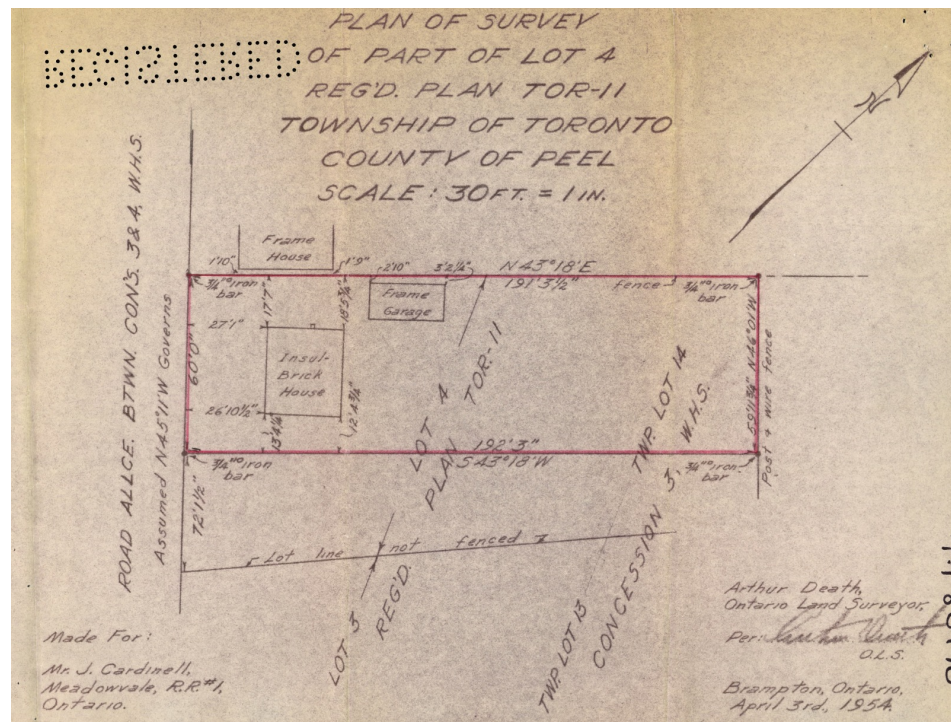 PLAN OF SURVEY
OF PART OF LOT 4
REG'D. PLAN TOR-11
TOWNSHIP OF TORONTO
COUNTY OF PEEL
SCALE: 30 FT. = 1 IN.
N
ROAD ALLCE. BTWN. CON'S. 3 & 4, W.H.S.
Assumed N45°11'W Governs
Frame
House
1'10"
1'9"
2'10"
3'2¼"
N43°18'E
191'3½"
fence
¾"□ iron
bar
¾"□ iron
bar
Frame
Garage
17'7"
18'5¾"
27'1"
60'0"
Insul-
Brick
House
26'10½"
13'4¼"
12'4¾"
LOT 4
PLAN TOR.-11
TWP. LOT 14
W.H.S.
59'11¾" N46°01'W
Post & wire fence
192'3"
S43°18'W
¾"□ iron
bar
3, ¾"□ iron
bar
72'1½"
Lot line not fenced
LOT 3
REG'D.
TWP. LOT 13
CONCESSION
Made For:
Mr. J. Cardinell,
Meadowvale, R.R.#1,
Ontario.
Arthur Death,
Ontario Land Surveyor,
Per: Arthur Death
O.L.S.
Brampton, Ontario,
April 3rd, 1954.